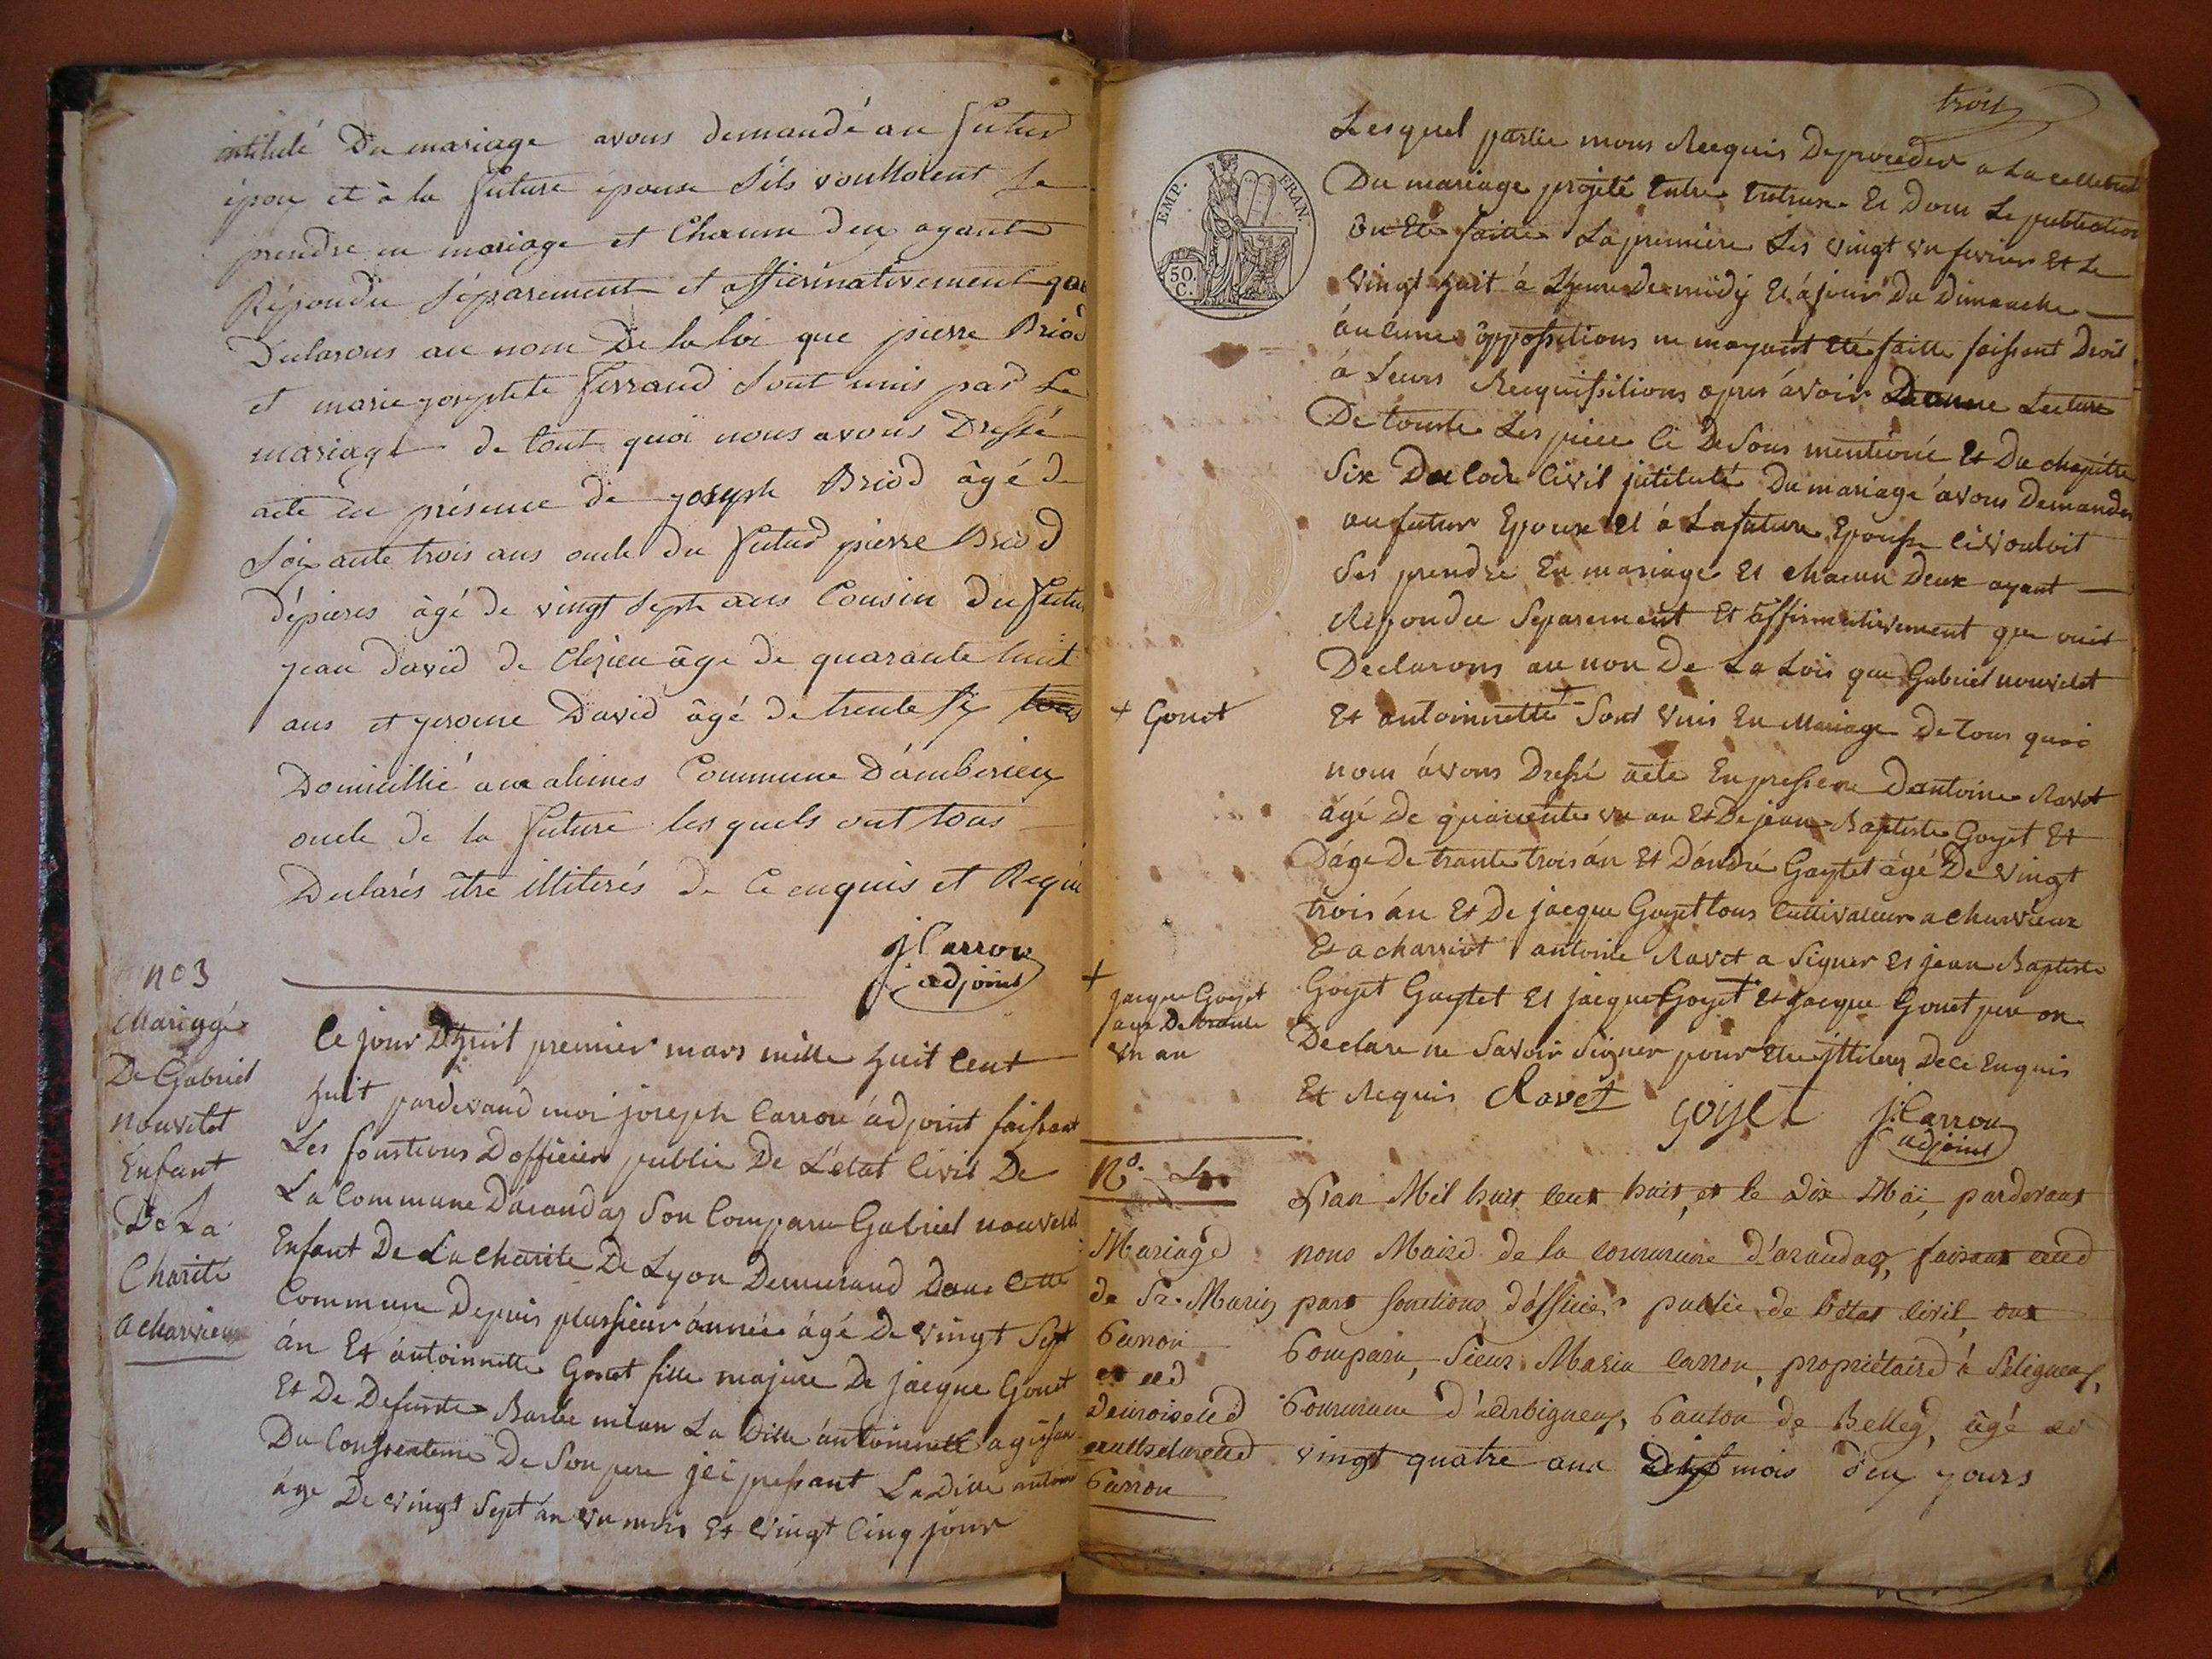 intitulé Du mariage avons demandé au futur
époux et à la future épouse S'ils voulloient se
prendre en mariage et Chacun deux ayant
Répondu séparement et affirmativement que
Declarons au nom De la loi que pierre Briod
et marie josephte ferrand Sont unis par Le
mariage de tout quoi nous avons Dressé
acte en présence de joseph Briod âgé de
Soixante trois ans oncle du futur pierre Briod
âgé de vingt Sept ans Cousin Du futur
jean david de âgé de quarante huit
ans et jerome David âgé de trente Six
Domicillié aux alimes Commune D'amberieux
oncle de la future lesquels ont tous
Declarés être illiterés de Ce enquis et Requis
J Carron
adjoint
no 3
Mariage
De Gabriel
nouvelet
Enfant
De La
Charité
a charvieux
Ce jour Dhuit premier mars mille huit Cent
huit pardevand moi joseph Carron adjoint faissant
Les fonstions Dofficier public De L'état Civil De
La Commune Darandas Son Comparu Gabriel nouvelet
Enfant De La charite De Lyon Demeurand Dans Cette
Commune Depuis plussieur année agé De vingt Sept
án Et antoinnette Gonet fille majure De jacque Gonet
Et De Defunte Barbe milan La Ditte antoinnette agissan
Du Conssenteme De Son pere jci pressant La Ditte antoin
áge De vingt Sept an vn mois Et vingt Cinq jour
trois
EMP. FRAN.
50. C.
Lesquel partie mons Requis De proceder a La cellebrat
Du mariage projeté Entre Entreux Et Dont Le publication
On Eté faitte La premiere Les vingt vn fevrier Et Le
vingt huit á Lheure De midy Et á jour Du Dimanche
áucune oppossitions ne mayant Eté faitte faissant Droit
á Leurs Requissitions apres ávoir Donne Lecture
De toutte Les piece Ci De Sous mentionné Et Du chapitre
Six Du Code Civil jntitulé Du mariage avons Demander
au futur Epoux Et á La future Epousse Ci vouloit
Ses prendre En mariage Et chacun Deux ayant
Repondu Separement Et affirmativement que ouit
Declarons au non De La Lois que Gabriel nouvelet
+ Gonet
Et antoinnette + Sont vnis En Mariage De tous quoi
nous ávons Dressé acte En pressence Dantoine Ravet
ágé De quarente vn an Et De jean Baptiste Goyet Et
Dáge De trante trois án Et Dándré Gaytet ágé De vingt
trois án Et De jacque Goyet tous Cultivateur a charvieux
Et a charriot antoine Ravet a Signer Et jean Baptiste
+
jacque Goyet
age De trante
vn an
Goyet Gaytet Et jacque Goyet + Et jacque Gonet pere on
Declare ne Savoir Signer pour Etre jlliteres De Ce Enquis
Et Requis Ravet goyet J. Carron
adjoint
No. 4.
Mariage
de Sr. Marin
Carron
et de
Demoiselle
Carron
L'an Mil huit cent huit, et le dix Mai, pardevant
nous Maire de la commune d'arandas, faisant les
fonctions d'officier public de l'état Civil, out
Comparu, Sieur Marin Carron, propriétaire à Seligneux,
Commune d'Arbigneux, Canton de Belley, âgé de
vingt quatre ans mois deux jours